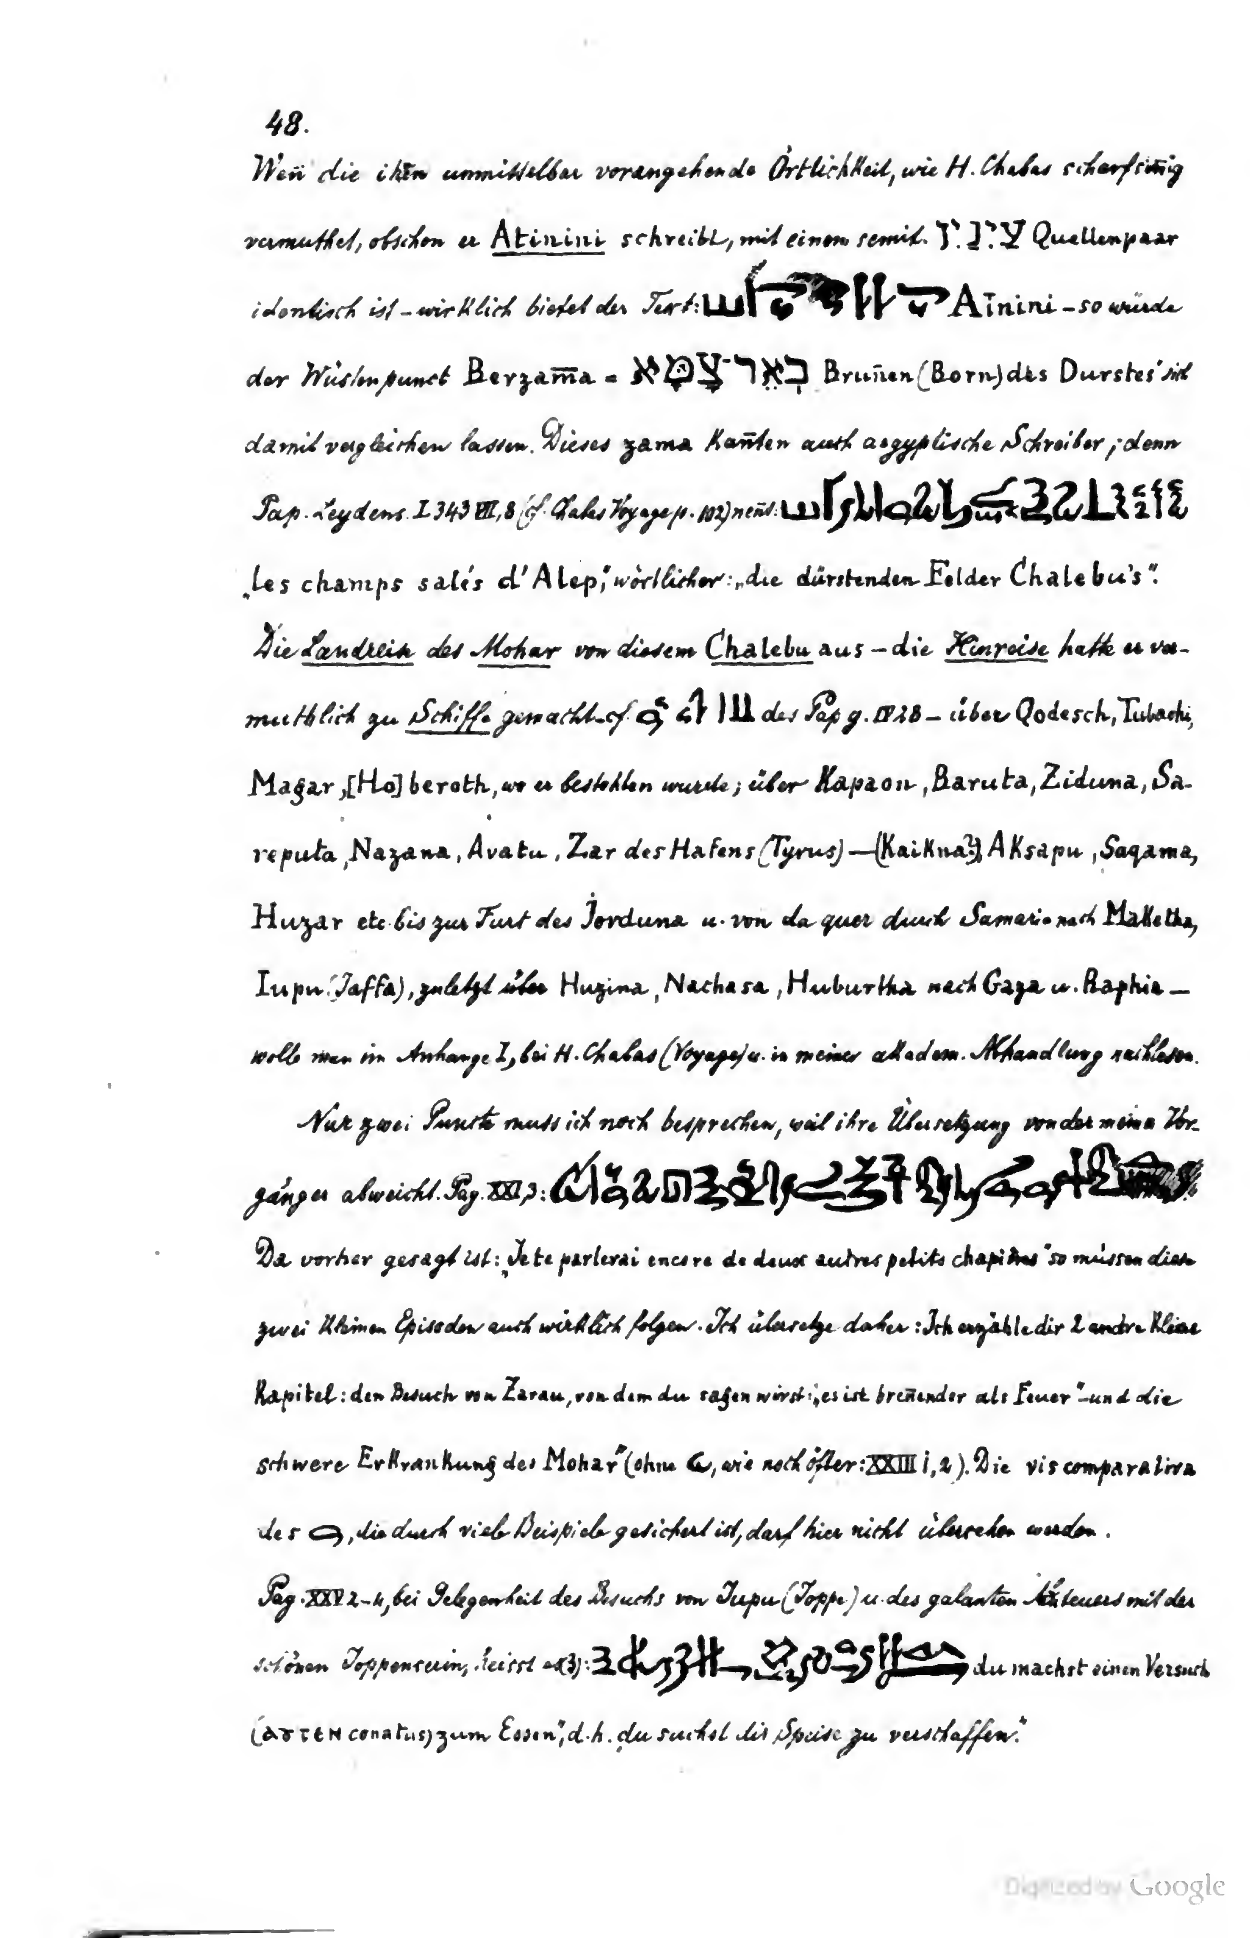 48.
Wen̄ die ihm unmittelbar vorangehende Örtlichkeit, wie H. Chabas scharfsin̄ig
vermuthet, obschon er Atinini schreibt, mit einem semit. Quellenpaar
identisch ist – wirklich bietet der Text: Aïnini – so würde
der Wüstenpunct Berzam̄a = בְאֵר־צָמָא Brun̄en (Born) des Durstes" sich
damit vergleichen lassen. Dieses zama kan̄ten auch aegyptische Schreiber; denn
Pap. Leydens. I 343 VII, 8 (cf. Chabas Voyage p. 102) nen̄t:
„les champs salés d'Alep", wörtlicher: „die dürstenden Felder Chalebu's".
Die Landreise des Mohar von diesem Chalebu aus – die Hinreise hatte er ver-
muthlich zu Schiffe gemacht cf. des Pap – über Qodesch, Tubachi,
Magar, [Ho]beroth, wo er bestohlen wurde; über Kapaon, Baruta, Ziduna, Sa-
reputa, Nazana, Avatu, Zar des Hafens (Tyrus) – (Kaikna?), Aksapu, Saqama,
Huzar etc. bis zur Furt des Jorduna u. von da quer durch Samaria nach Makketha,
Iupu (Jaffa), zuletzt über Huzina, Nachasa, Huburtha nach Gaza u. Raphia –
wolle man im Anhange I, bei H. Chabas (Voyage) u. in meiner akadem. Abhandlung nachlesen.
Nur zwei Puncte muss ich noch besprechen, weil ihre Übersetzung von der meiner Vor-
gänger abweicht. Pag. XXI, 3:
Da vorher gesagt ist: „Je te parlerai encore de deux autres petits chapitres" so müssen diese
zwei kleinen Episoden auch wirklich folgen. Ich übersetze daher: Ich erzähle dir 2 andre kleine
Kapitel: den Besuch von Zarau, von dem du sagen wirst: „es ist bren̄ender als Feuer" – und die
schwere Erkrankung des Mohar" (ohne , wie noch öfter: XXIII 1, 2). Die vis comparativa
des , die durch viele Beispiele gesichert ist, darf hier nicht übersehen werden.
Pag. XXV 2-4, bei Gelegenheit des Besuchs von Iupu (Joppe) u. des galanten Abenteuers mit der
schönen Joppenserin, heisst es (3): du machst einen Versuch
(conatus) zum Essen", d.h. „du suchst dir Speise zu verschaffen."
Digitized by Google